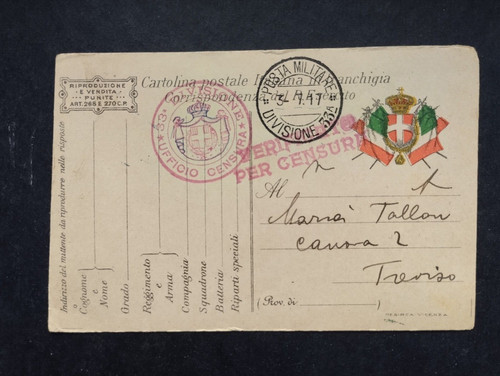 RIPRODUZIONE
E VENDITA
PUNITE
ART. 265 E 270 C. P.
Cartolina postale Italiana in franchigia
Corrispondenza del R. Esercito
POSTA MILITARE
DIVISIONE 33A
33a DIVISIONE
UFFICIO CENSURA
VERIFICATO
PER CENSURA
Al
Maria
canova 2
Treviso
(Prov. di
Indirizzo del mittente da riprodurre nelle risposte
Cognome
e
Nome
Grado
Reggimento
e
Arma
Compagnia
Squadrone
Batteria
Riparti speciali